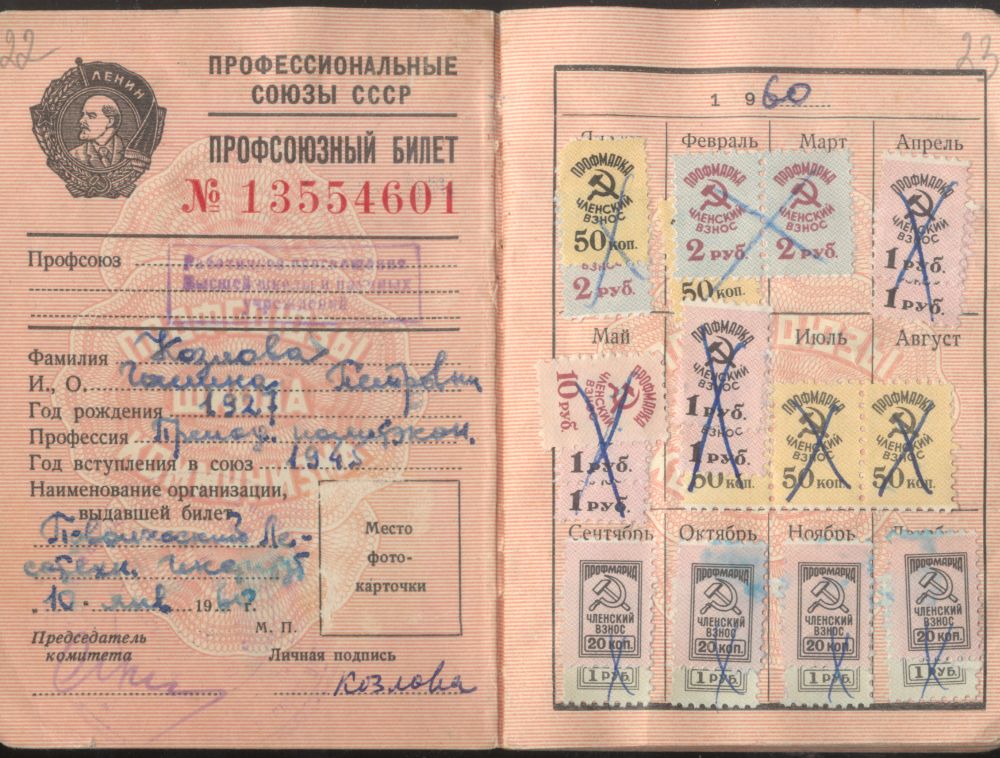 22
ЛЕНИН
ПРОФЕССИОНАЛЬНЫЕ
СОЮЗЫ СССР
ПРОФСОЮЗНЫЙ БИЛЕТ
№ 13554601
Профсоюз
Высшей школы и научных
учреждений
Фамилия Козлова
И., О. Галина Петровна
Год рождения 1927
Профессия Препод.
Год вступления в союз 1945
Наименование организации,
выдавшей билет
10 янв 1960 г.
М. П.
Место
фото-
карточки
Председатель
комитета
Личная подпись
Козлова
23
1960
Февраль Март Апрель
ПРОФМАРКА ПРОФМАРКА ПРОФМАРКА ПРОФМАРКА
ЧЛЕНСКИЙ ЧЛЕНСКИЙ ЧЛЕНСКИЙ ЧЛЕНСКИЙ
ВЗНОС ВЗНОС ВЗНОС ВЗНОС
50 коп. 2 руб. 2 руб. 1 руб.
2 руб. 50 коп. 1 руб.
Май Июль Август
ПРОФМАРКА ПРОФМАРКА ПРОФМАРКА ПРОФМАРКА
ЧЛЕНСКИЙ ЧЛЕНСКИЙ ЧЛЕНСКИЙ ЧЛЕНСКИЙ
ВЗНОС ВЗНОС ВЗНОС ВЗНОС
10 руб 1 руб. 50 коп. 50 коп.
1 руб. 1 руб.
1 руб. 50 коп.
Сентябрь Октябрь Ноябрь Декабрь
ПРОФМАРКА ПРОФМАРКА ПРОФМАРКА ПРОФМАРКА
ЧЛЕНСКИЙ ЧЛЕНСКИЙ ЧЛЕНСКИЙ ЧЛЕНСКИЙ
ВЗНОС ВЗНОС ВЗНОС ВЗНОС
20 коп. 20 коп. 20 коп. 20 коп.
1 РУБ. 1 РУБ. 1 РУБ. 1 РУБ.